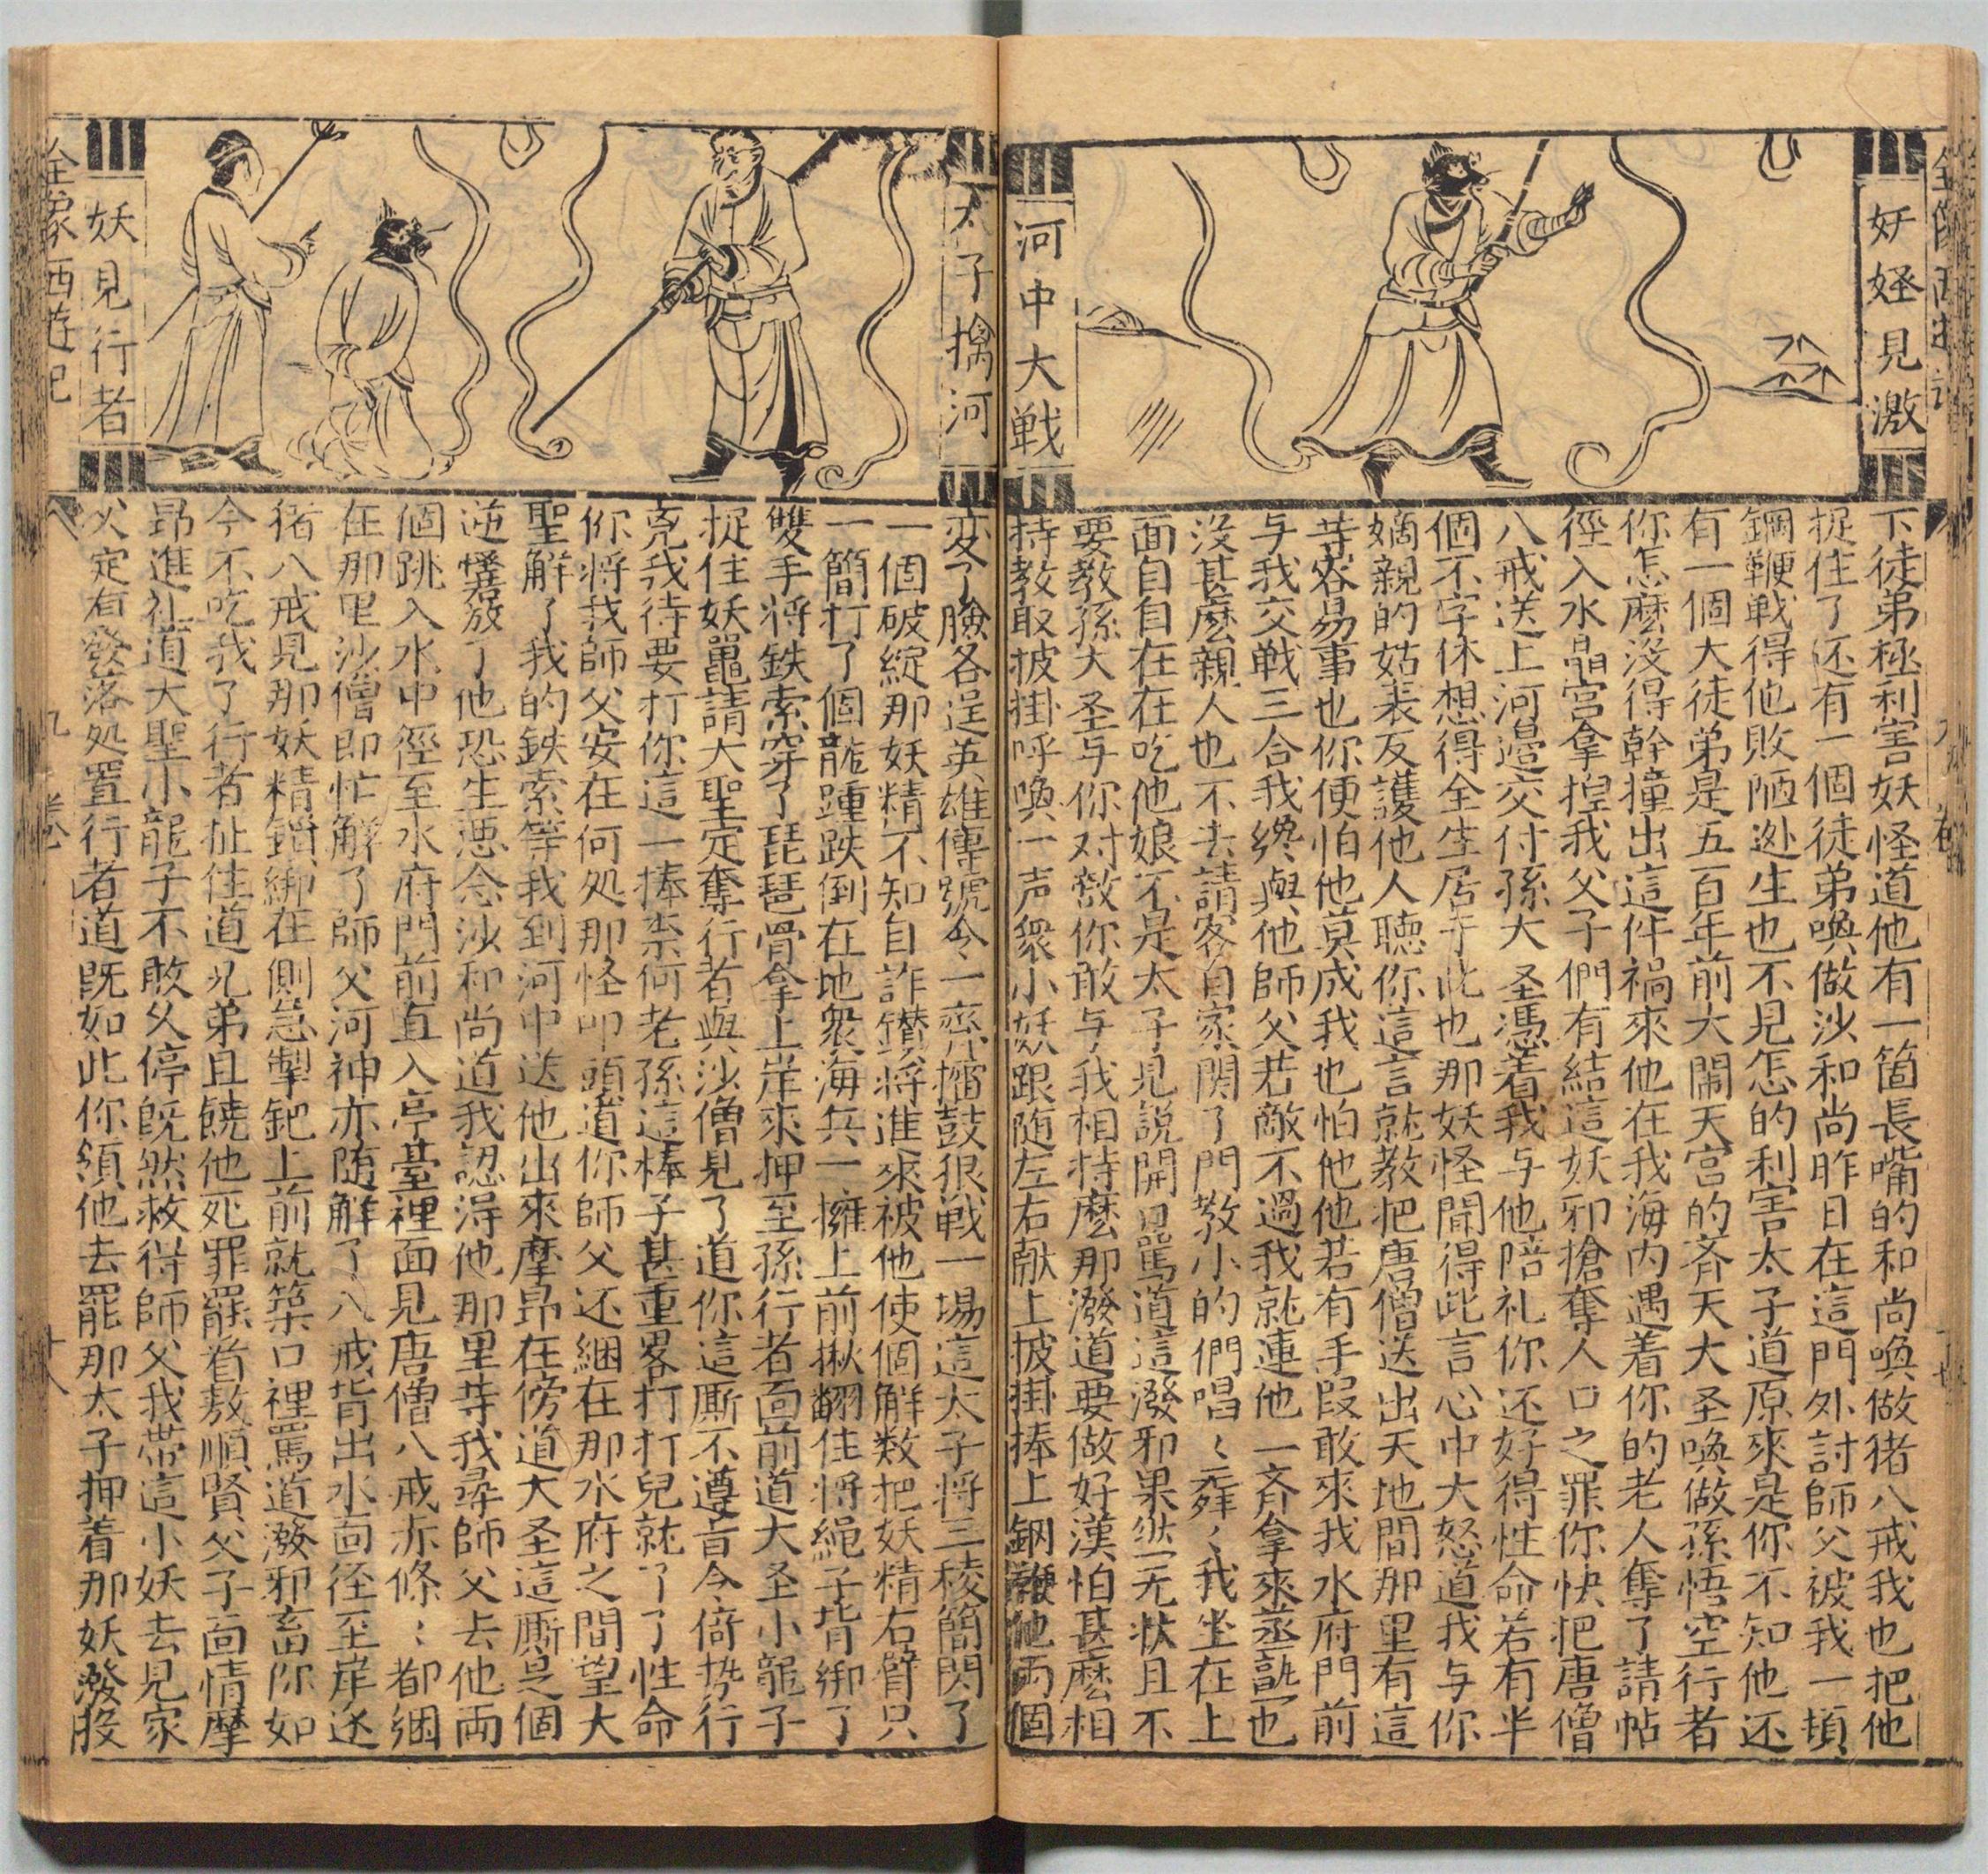 妖怪見激
河中大戦
下徒弟極利害妖怪道他有一箇長嘴的和尚喚做猪八戒我也把他
捉住了还有一個徒弟喚做沙和尚昨日在這門外討師父被我一頓
鋼鞭戦得他敗陋迯生也不見怎的利害太子道原來是你不知他还
有一個大徒弟是五百年前大鬧天宮的斉天大圣喚做孫悟空行者
你怎麽沒得幹撞出這件禍來他在我海内遇着你的老人奪了請帖
徑入水晶宮拿揑我父子們有結這妖邪搶奪人口之罪你快把唐僧
八戒送上河邉交付孫大圣憑着我与他陪礼你还好得性命若有半
個不字休想得全生居于此也那妖怪聞得此言心中大怒道我与你
嫡親的姑表反護他人聴你這言就教把唐僧送出天地間那里有這
寺容易事也你便怕他莫成我也怕他他若有手叚敢來我水府門前
与我交戦三合我纔與他師父若敵不過我就連他一斉拿來蒸熟也
沒甚麽親人也不去請客自家閑了門教小的們唱〻舞〻我坐在上
面自自在在吃他娘不是太子見說開口罵道這潑邪果然无状且不
要教孫大圣与你对敵你敢与我相持麽那潑道要做好漢怕甚麽相
持教取披掛呼喚一声衆小妖跟随左右献上披掛捧上鋼鞭他両個
太子擒河
妖見行者
変了臉各逞英雄傳號令一齊擂鼓狠戦一場這太子将三稜簡閃了
一個破綻那妖精不知自詐鑽将進來被他使個解数把妖精右臂只
一簡打了個龍踵跌倒在地衆海兵一擁上前揪翻住将繩子背綁了
雙手将鉄索穿了琵琶骨拿上岸來押至孫行者面前道大圣小龍子
捉住妖鼉請大聖定奪行者與沙僧見了道你這厮不遵旨令倚势行
兇我待要打你這一捧柰何老孫這棒子甚重畧打打兒就了了性命
你将我師父安在何処那怪叩頭道你師父还綑在那水府之間望大
聖解了我的鉄索等我到河中送他出來摩昂在傍道大圣這厮是個
逆怪放了他恐生悪念沙和尚道我認淂他那里寺我尋師父去他両
個跳入水中徑至水府門前直入亭臺裡面見唐僧八戒赤條〻都綑
在那里沙僧即忙解了師父河神亦随解了八戒背出水面径至岸迯
猪八戒見那妖精鎖綁在側急掣鈀上前就築口裡罵道潑邪畜你如
今不吃我了行者扯住道兄弟且饒他死罪罷看敖順賢父子面情摩
昂進礼道大聖小龍子不敢久停既然救得師父我帶這小妖去見家
父定有發落処置行者道既如此你領他去罷那太子押着那妖潑股
全像西遊記
九卷
十八